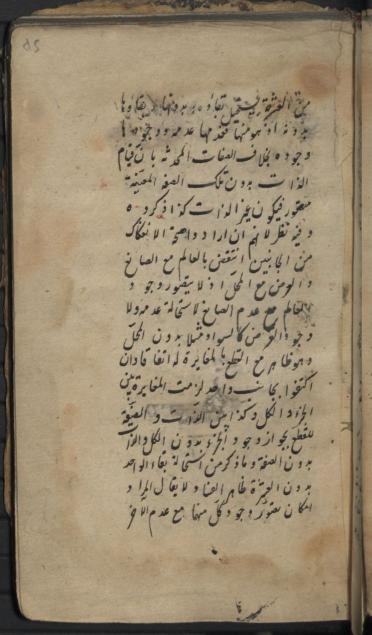 من العشرة يستحيل بقاؤه بدونها وبقاؤها
بدونه اذ هو منها فعدمها عدمه ووجودها
وجوده بخلاف الصفات المحدثة فان قيام
الذات بدون تلك الصفة المعينة
متصور فيكون غير الذات كذا ذكروه
وفيه نظر لانهم ان ارادوا صحة الانفكاك
من الجانبين انتقض بالعالم مع الصانع
والعرض مع المحل اذ لا يتصور وجود
العالم مع عدم الصانع لاستحالة عدمه ولا
وجود العرض كالسواد مثلا بدون المحل
وهو ظاهر مع القطع بالمغايرة اتفاقا وان
اكتفوا بجانب واحد لزمت المغايرة بين
الجزء والكل وكذا بين الذات والصفة
للقطع بجواز وجود الجزء بدون الكل والذات
بدون الصفة وما ذكر من استحالة بقاء الواحد
بدون العشرة ظاهر الفساد لا يقال المراد
امكان تصور وجود كل منهما مع عدم الآخر